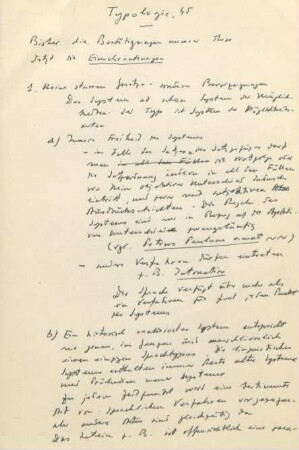 Typologie, 45
Bisher die Bestätigungen unserer These
Jetzt die Einschränkungen
1. Keine starren Gesetze – sondern Bevorzugungen
Das System ist schon System der Möglich-
keiten. Der Typ ist System der Möglichkeits-
arten
a) Innere Freiheit des Systems
– im Falle des Satzgefüges darf
man in all den Fällen
die Satzordnung ändern in all den Fällen
wo kein objektiver Unterschied dadurch
eintritt, und zwar aus subjektiven
Ausdrucksabsichten. Die Regeln des
Systems sind nur in Bezug auf die
Unterschiede zwangsläufig
(vgl. Petrus Paulum amat usw)
– andere Verfahren dürfen eintreten
z. B. Intonation
Die Sprache verfügt über mehr als
ein Verfahren für fast jeden Punkt
des Systems
b) Ein historisch realisiertes System entspricht
nie genau, im Ganzen und ausschliesslich
einem einzigen Sprachtypus. Die linguistischen
Systeme enthalten immer Reste alter Systeme
und neuer Systeme
Zu jedem Zeitpunkt wird eine bestimmte
Art von sprachlichen Verfahren vorgezogen
aber andere Arten sind gleichzeitig da
Das Latein z. B. ist offensichtlich eine